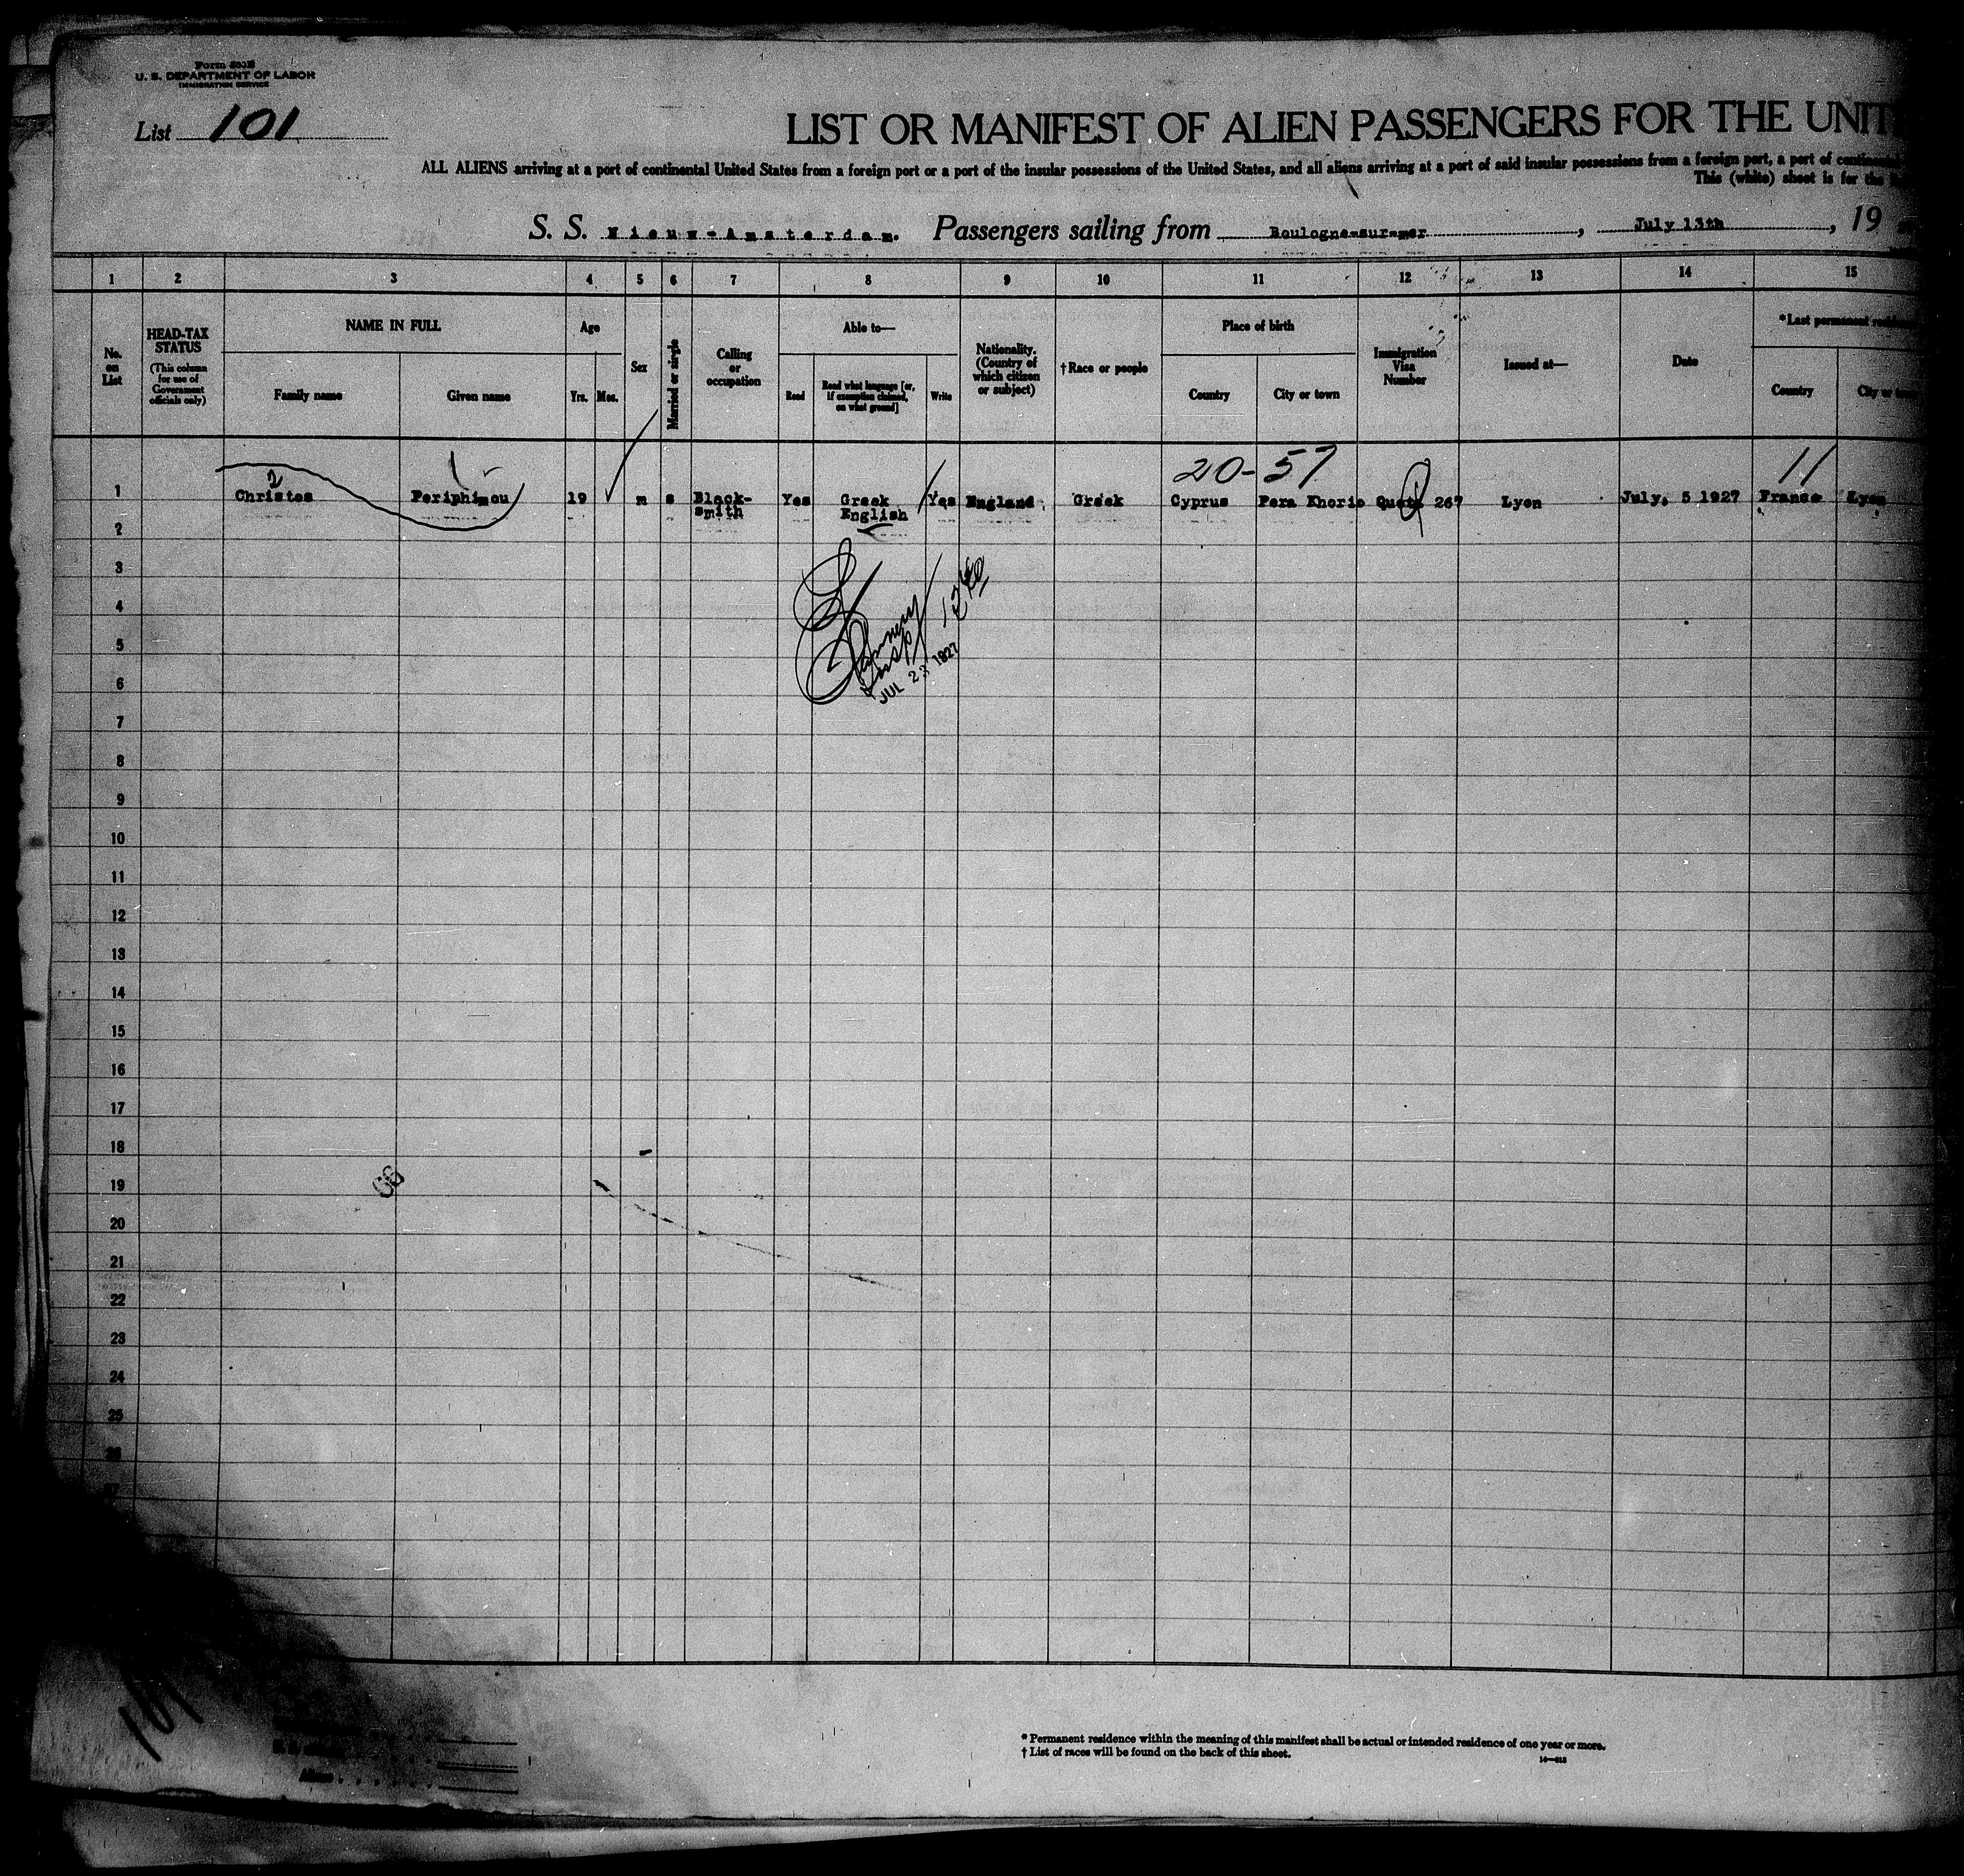 Form 500B
U. S. DEPARTMENT OF LABOR
IMMIGRATION SERVICE
List 101
LIST OR MANIFEST OF ALIEN PASSENGERS FOR THE UNIT
ALL ALIENS arriving at a port of continental United States from a foreign port or a port of the insular possessions of the United States, and all aliens arriving at a port of said insular possessions from a foreign port, a port of
This (white) sheet is for the
S. S. Nieuw-Amsterdam. Passengers sailing from Boulogne-sur-mer, July 13th, 19
1 2 3 4 5 6 7 8 9 10 11 12 13 14 15
No. on List
HEAD-TAX STATUS
(This column for use of Government officials only)
NAME IN FULL
Family name
Given name
Age
Yrs.
Mos.
Sex
Married or single
Calling or occupation
Able to—
Read
Read what language [or, if exemption claimed, on what ground]
Write
Nationality. (Country of which citizen or subject)
†Race or people
Place of birth
Country
City or town
Immigration Visa Number
Issued at—
Date
*Last permanent
Country
City or
2 20-57 11
1 Christos Periphimou 19 m s Black-smith Yes Greek English Yes England Greek Cyprus Pera Khorio Quota 267 Lyon July, 5 1927 France Lyon
2
3
4
5
6
7
8
9
10
11
12
13
14
15
16
17
18
19
20
21
22
23
24
25
26
Insp
JUL 23 1927
* Permanent residence within the meaning of this manifest shall be actual or intended residence of one year or more.
† List of races will be found on the back of this sheet.
101